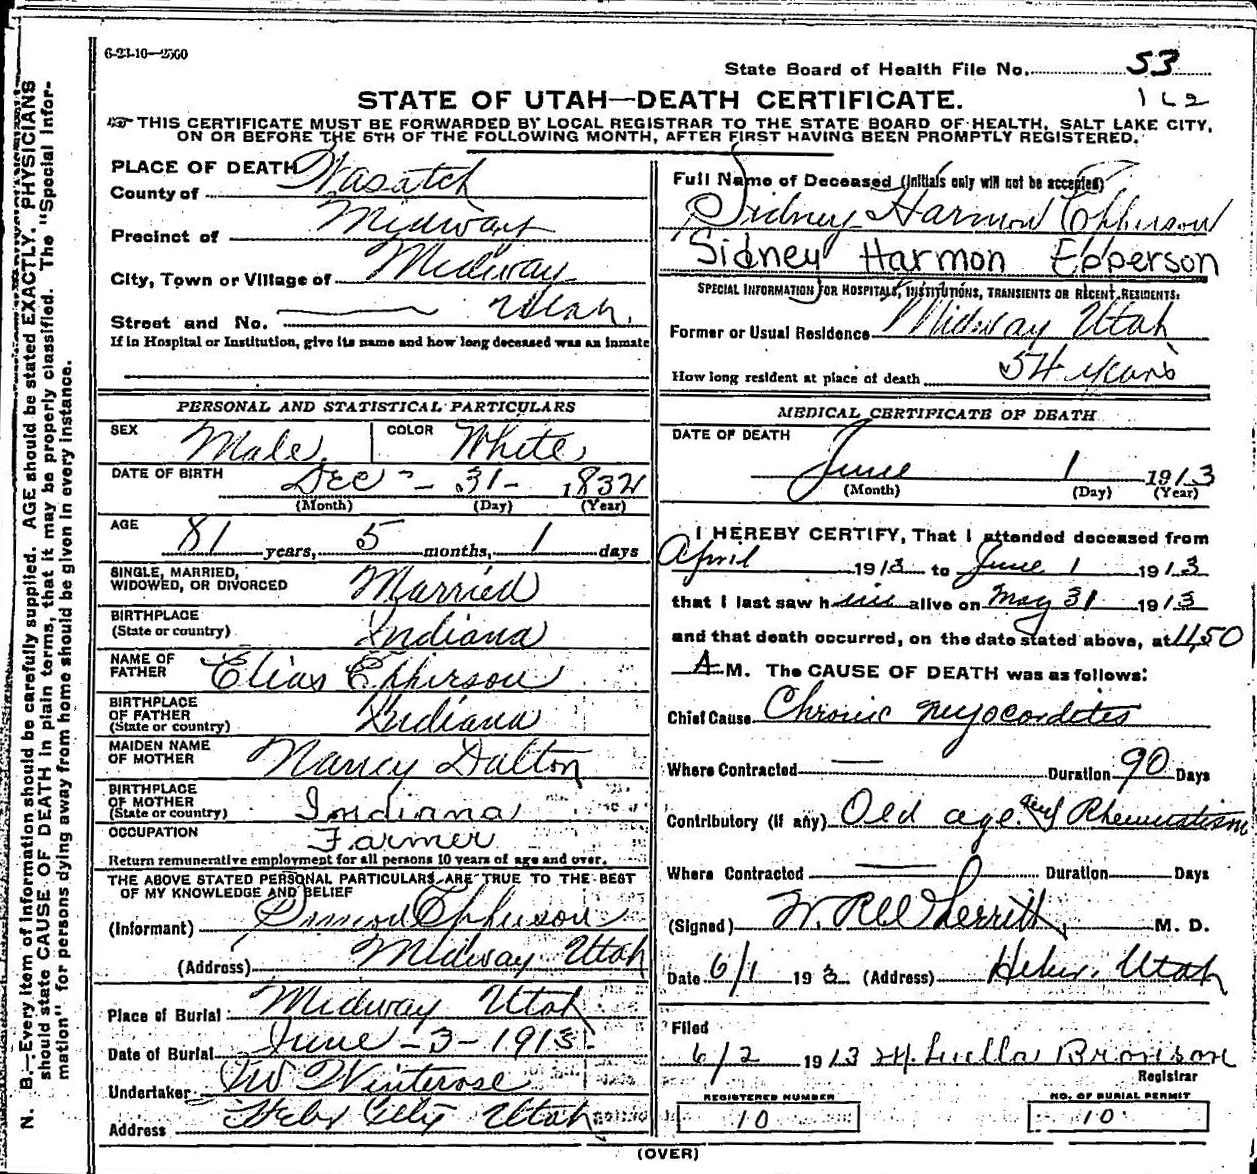 6-23-10—2500
State Board of Health File No. 53
162
STATE OF UTAH—DEATH CERTIFICATE.
THIS CERTIFICATE MUST BE FORWARDED BY LOCAL REGISTRAR TO THE STATE BOARD OF HEALTH, SALT LAKE CITY,
ON OR BEFORE THE 5TH OF THE FOLLOWING MONTH, AFTER FIRST HAVING BEEN PROMPTLY REGISTERED.
N. B.—Every item of information should be carefully supplied. AGE should be stated EXACTLY. PHYSICIANS
should state CAUSE OF DEATH in plain terms, that it may be properly classified. The "Special Infor-
mation" for persons dying away from home should be given in every instance.
PLACE OF DEATH
County of Wasatch
Precinct of Midway
City, Town or Village of Midway
Street and No. Utah.
If in Hospital or Institution, give its name and how long deceased was an inmate
PERSONAL AND STATISTICAL PARTICULARS
SEX Male. COLOR White
DATE OF BIRTH Dec - 31 - 1832
(Month) (Day) (Year)
AGE 81 years, 5 months, 1 days
SINGLE, MARRIED,
WIDOWED, OR DIVORCED Married
BIRTHPLACE
(State or country) Indiana
NAME OF
FATHER Elias Epperson
BIRTHPLACE
OF FATHER
(State or country) Indiana
MAIDEN NAME
OF MOTHER Nancy Dalton
BIRTHPLACE
OF MOTHER
(State or country) Indiana
OCCUPATION Farmer
Return remunerative employment for all persons 10 years of age and over.
THE ABOVE STATED PERSONAL PARTICULARS ARE TRUE TO THE BEST
OF MY KNOWLEDGE AND BELIEF
(Informant) Simeon Epperson
(Address) Midway Utah
Place of Burial Midway Utah
Date of Burial June - 3 - 1913.
Undertaker Winterose
Address Heber City Utah
Full Name of Deceased (Initials only will not be accepted)
Sidney Harmon Epperson
Sidney Harmon Epperson
SPECIAL INFORMATION FOR HOSPITALS, INSTITUTIONS, TRANSIENTS OR RECENT RESIDENTS:
Former or Usual Residence Midway Utah
How long resident at place of death 54 years
MEDICAL CERTIFICATE OF DEATH
DATE OF DEATH
June 1 1913
(Month) (Day) (Year)
I HEREBY CERTIFY, That I attended deceased from
April 1913 to June 1 1913
that I last saw him alive on May 31 1913
and that death occurred, on the date stated above, at 11,50
A M. The CAUSE OF DEATH was as follows:
Chief Cause Chronic myocordetes
Where Contracted Duration 90 Days
Contributory (if any) Old age. and Rheumatism
Where Contracted Duration Days
(Signed) W. R Wherritt M. D.
Date 6/1 1913 (Address) Heber. Utah
Filed
6/2 1913 Luella Bronson
Registrar
REGISTERED NUMBER
10
NO. OF BURIAL PERMIT
10
(OVER)